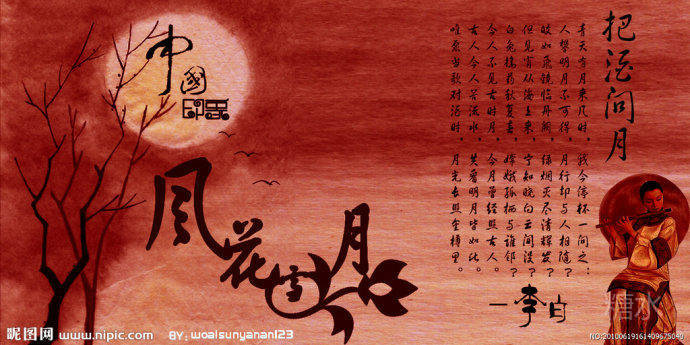 中國
风花雪月
把酒问月
青天有月来几时，我今停杯一问之：
人攀明月不可得，月行却与人相随？
皎如飞镜临丹阙，绿烟灭尽清辉发？
但见宵从海上来，宁知晓向云间没？
白兔捣药秋复春，嫦娥孤栖与谁邻？
今人不见古时月，今月曾经照古人。
古人今人若流水，共看明月皆如此。
唯愿当歌对酒时，月光长照金樽里。
—李白
糖水
昵图网 www.nipic.com
BY: woaisunyanan123
NO:20100619161409675040